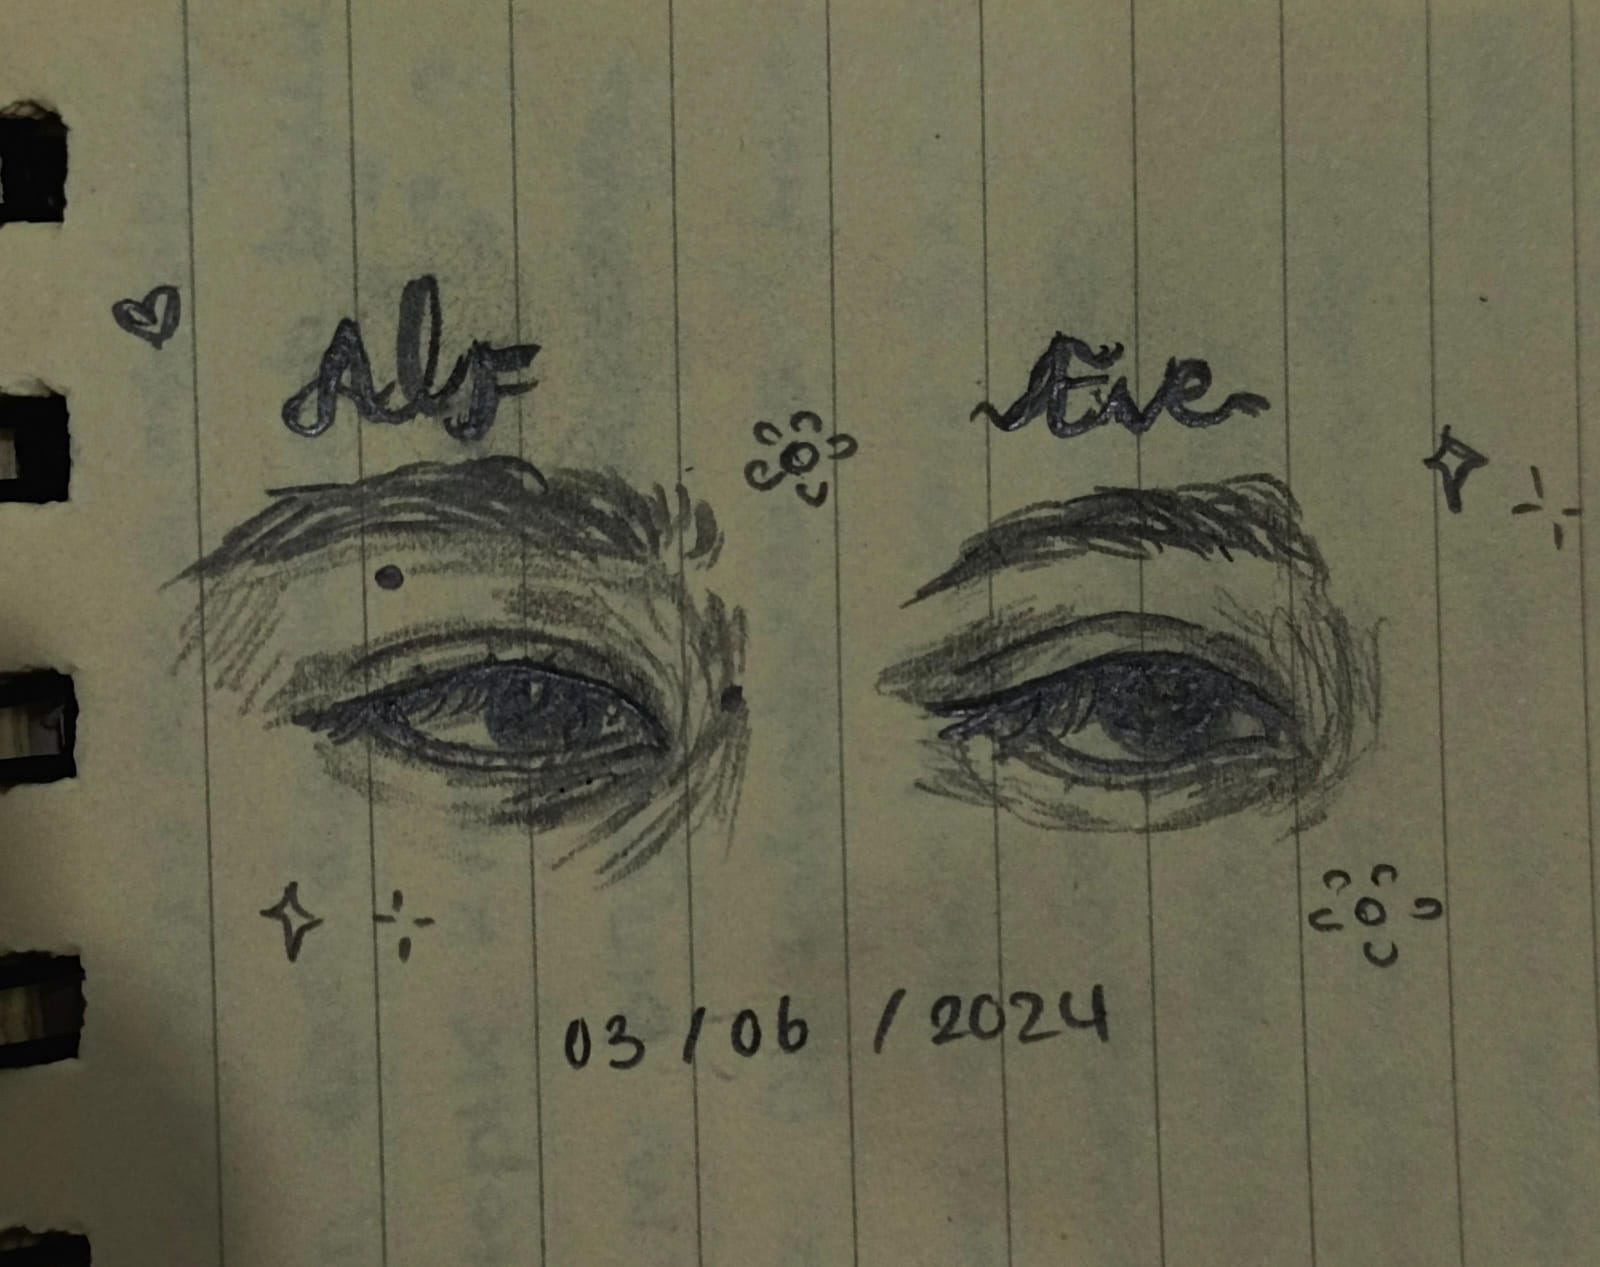 Alf Eve
03/06/2024